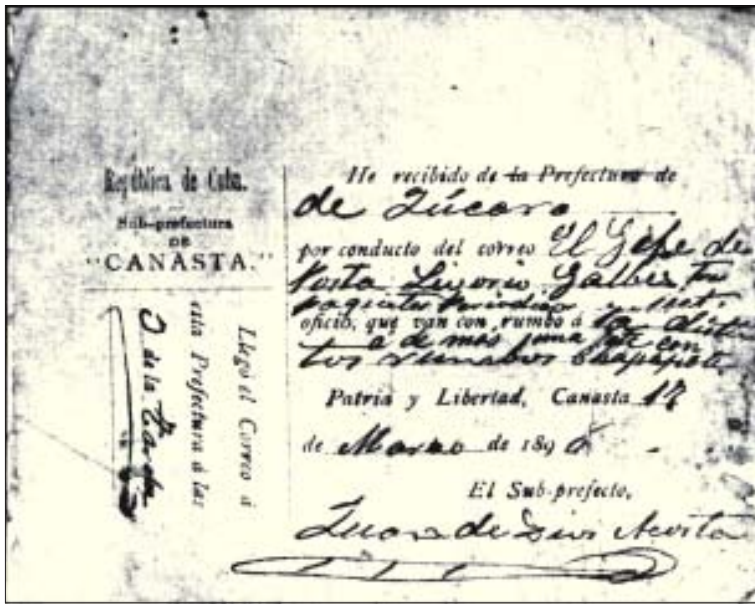 República de Cuba.
Sub-prefectura
DE
"CANASTA."
Llegó el Correo á
esta Prefectura á las
de la Tarde
He recibido de la Prefectura de
de Júcaro
por conducto del correo El Gefe de
Posta Ligorio Galbis tres
paquetes
oficio, que van con rumbo á
tos rumbos
Patria y Libertad, Canasta 17
de Marzo de 189
El Sub-prefecto,
Juan de Dios Acosta